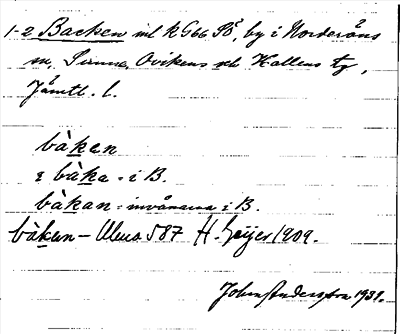 1-2 Backen enl. k G66 Sö, by i Norderöns
sn, Sunne, Ovikens och Hallens tg,
Jämtl. l.
bàkan
i bàka = i B.
bàkan = invånarna i B.
bàkan – Ulena 587 H. Geijer 1909.
John Andersson 1931.